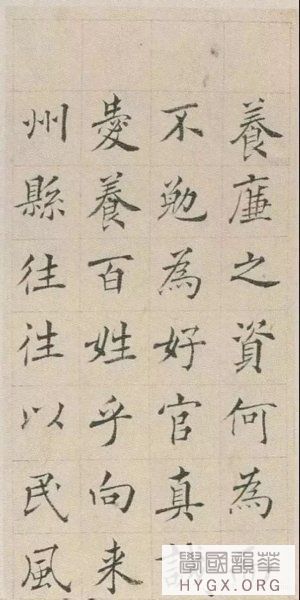 養廉之資何為
不勉為好官真
愛養百姓乎向来
州縣往往以民風
學國韻華
HYGX.ORG